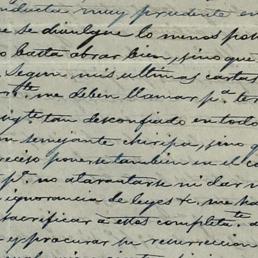 ducta muy prudente en
se divulgue lo menos pos
basta obrar bien, sino que
Segun mis ultimas cartas
me deben llamar pª ter
tan desconfiado en todo
semejante chiripa, pero q
ponerse tambien en el ca
pº. no atarantarse ni dar
ignorancia de leyes &, me ha
sacrificar a estos completa.te
y procurar su resurreccion